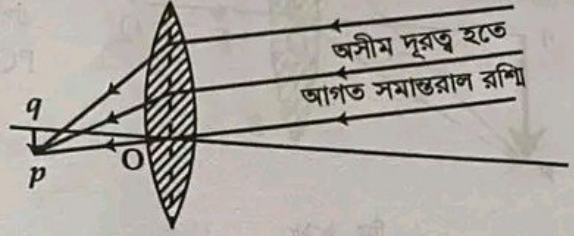 অসীম দূরত্ব হতে
আগত সমান্তরাল রশ্মি
q
O
p